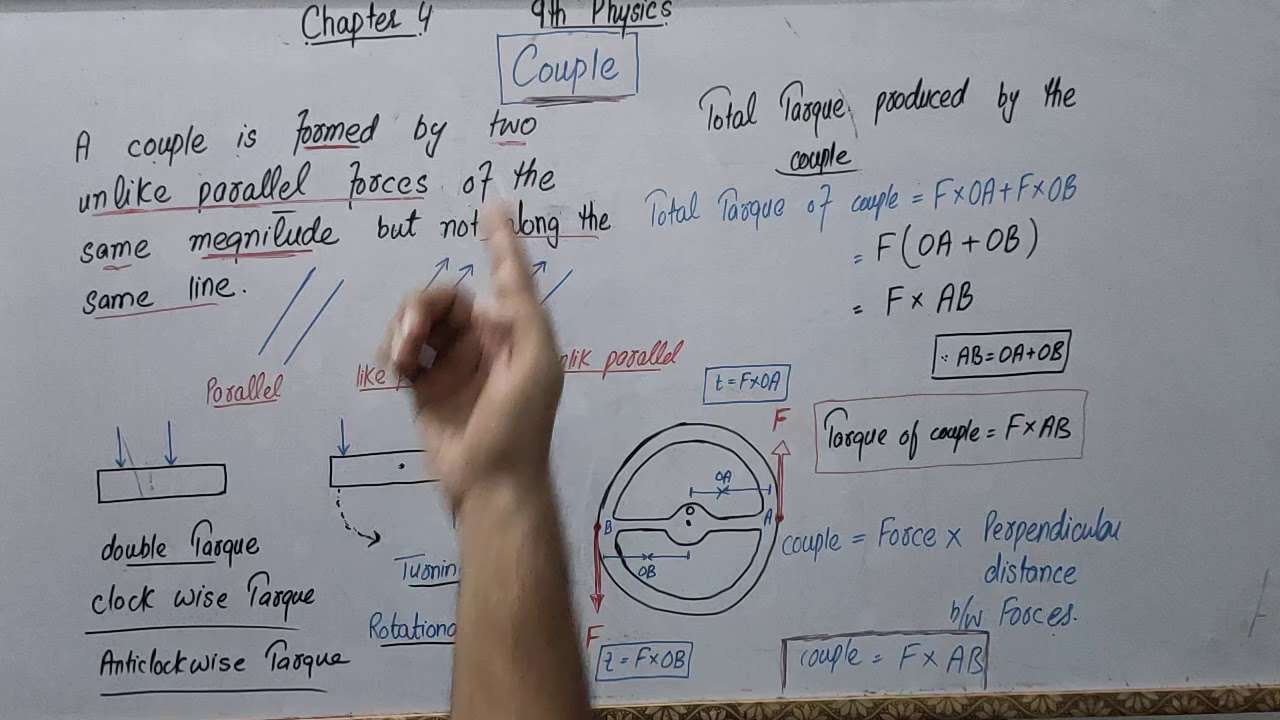 Chapter 4 9th Physics
Couple
A couple is formed by two
unlike parallel forces of the
same megnitude but not along the
same line.
Parallel
like
parallel
double Tarque
clock wise Tarque
Anticlockwise Tarque
Total Tarque produced by the
couple
Total Tarque of couple = F×OA+F×OB
= F(OA+OB)
= F× AB
∵ AB=OA+OB
Torque of couple = F×AB
t=F×OA
F
OA
O
B
A
OB
F
τ = F×OB
couple = Force × Perpendicular
distance
b/w Forces.
couple = F×AB